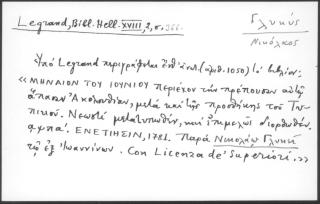 Legrand, Bibl. Hell. XVIII, 2, σ. 366.
Γλυκύς
Νικόλαος
Ὑπὸ Legrand περιγράφεται (ἀριθ. 1050) τὸ βιβλίον:
«ΜΗΝΑΙΟΝ ΤΟΥ ΙΟΥΝΙΟΥ ΠΕΡΙΕΧΟΝ τὴν πρέπουσαν αὐτῷ
ἅπασαν Ἀκολουθίαν, μετὰ καὶ τῆς προσθήκης τοῦ Τυ-
πικοῦ. Νεωστὶ μετατυπωθὲν, καὶ ἐπιμελῶς διορθωθέν.
αψπα΄. ΕΝΕΤΙΗΣΙΝ, 1781. Παρὰ Νικολάῳ Γλυκεῖ
τῷ ἐξ Ἰωαννίνων. Con Licenza de' Superiori.»